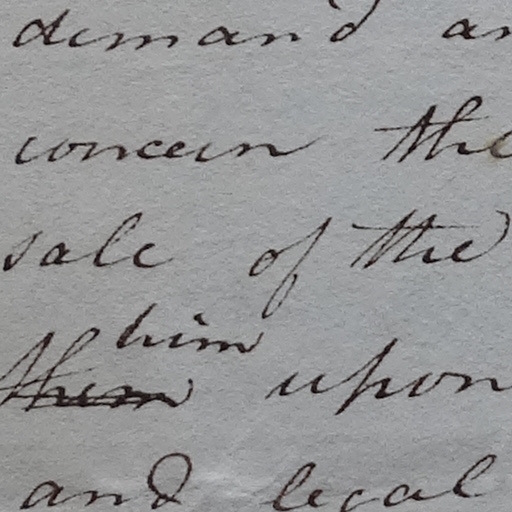 demand an
concern the
sale of the
him
them upon
and legal